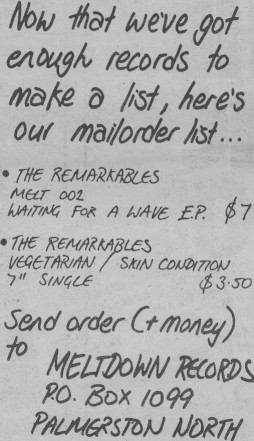 Now that we've got
enough records to
make a list, here's
our mailorder list...
• THE REMARKABLES
MELT 002
WAITING FOR A WAVE E.P. $7
• THE REMARKABLES
VEGETARIAN / SKIN CONDITION
7" SINGLE $3.50
Send order (+ money)
to
MELTDOWN RECORDS
P.O. BOX 1099
PALMERSTON NORTH